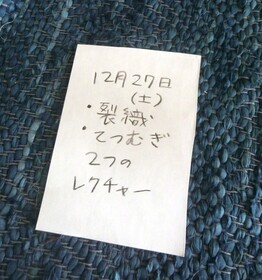 12月27日
(土)
・裂織
・てつむぎ
2つの
レクチャー